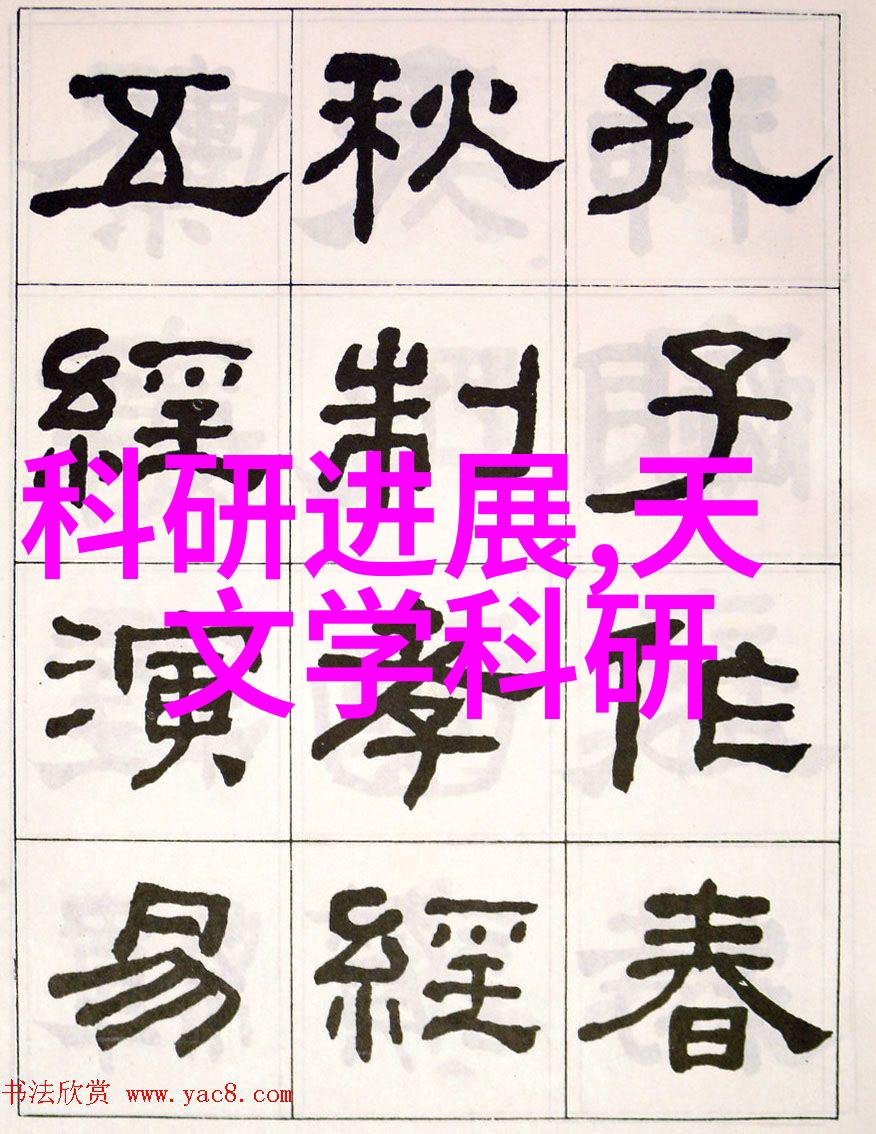 孔子作春
秋制孝經
五經演易
科研进展,天
文学科研
书法欣赏 www.yac8.com